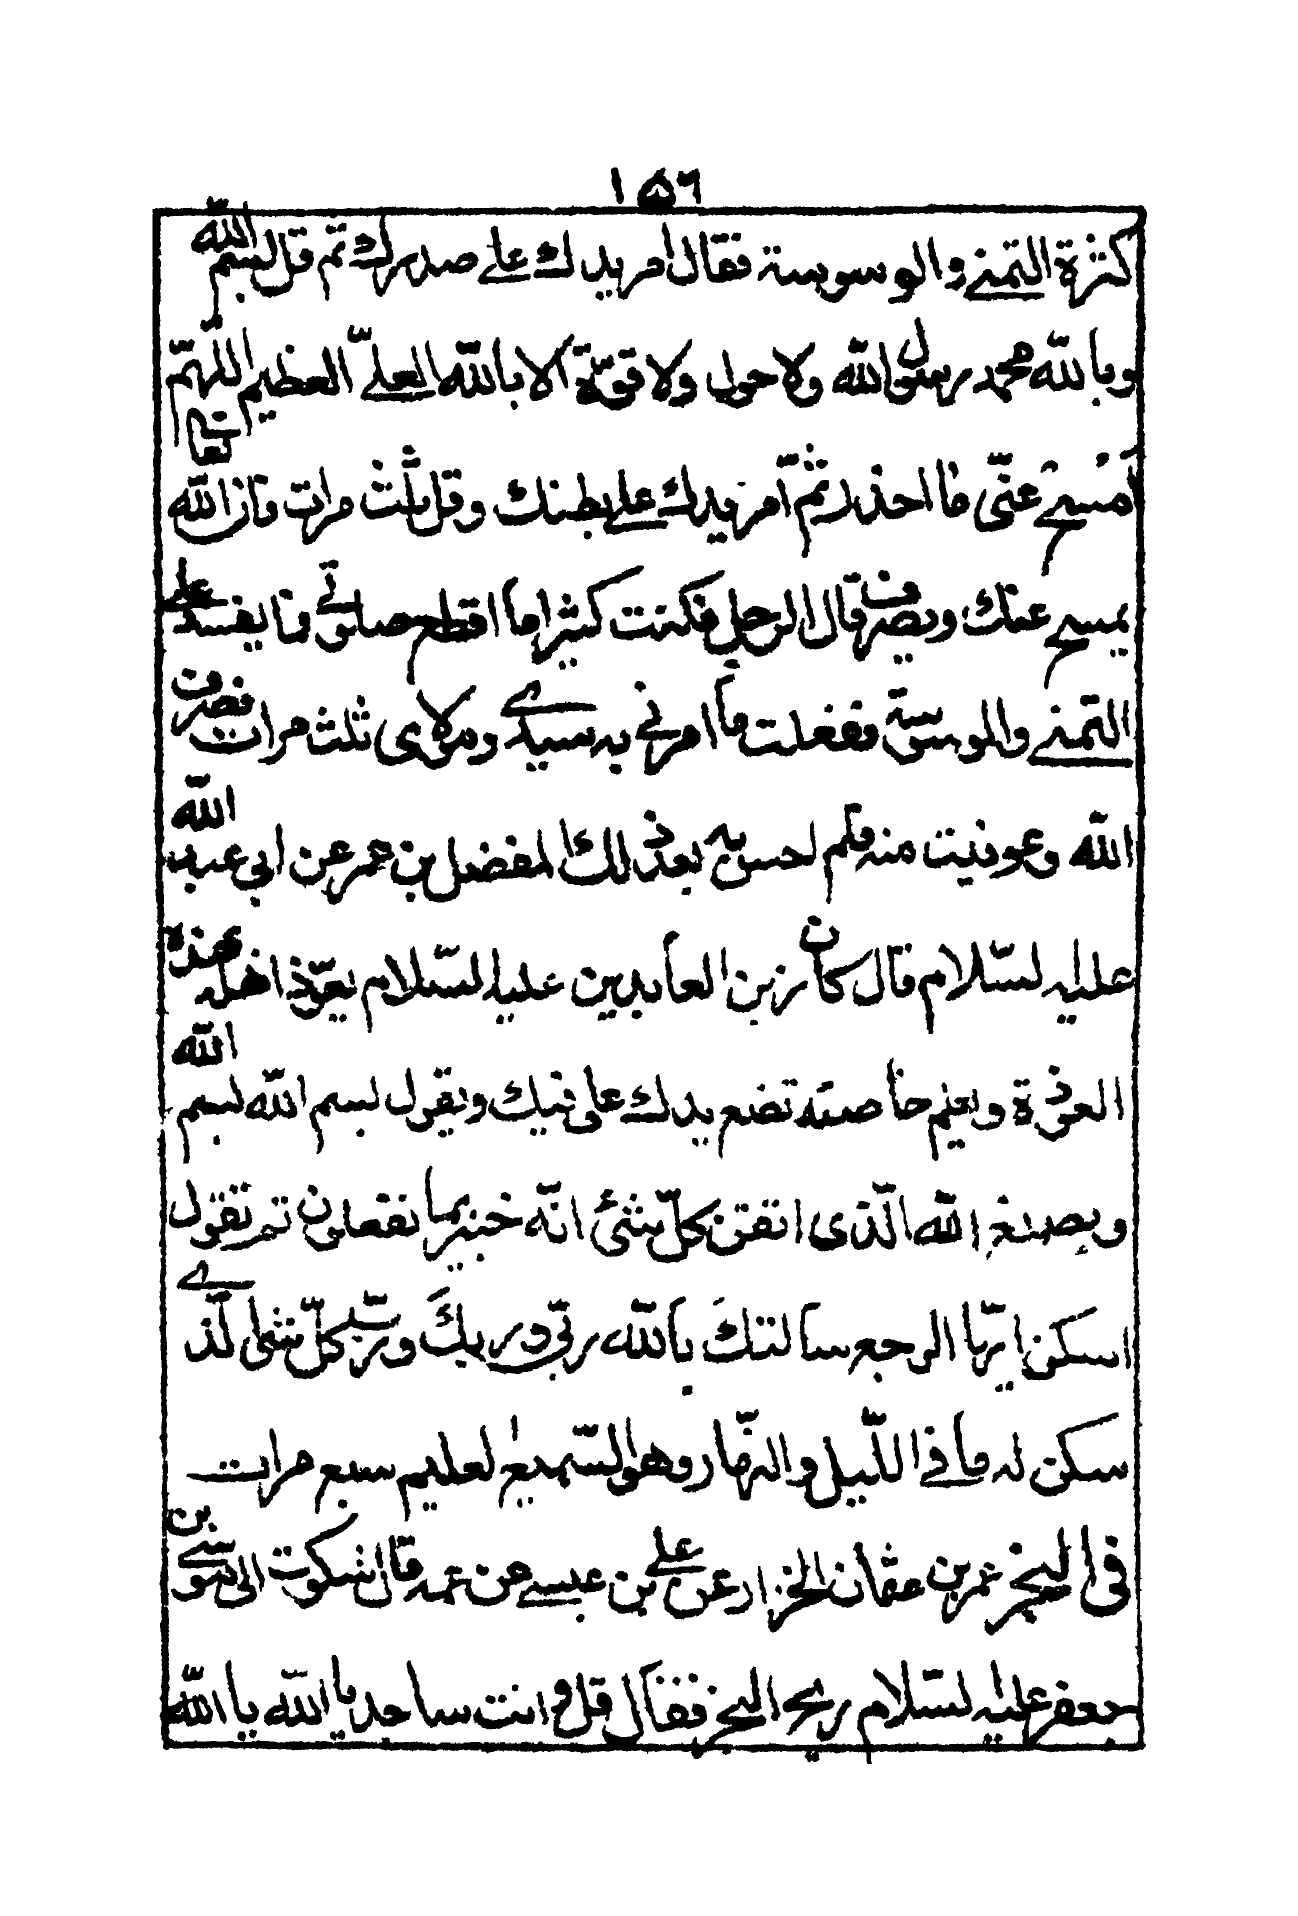 ١٥٦
كثرة التمني والوسوسة فقال امر يدك على صدرك ثم قل بسم الله
وبالله محمد رسول الله ولا حول ولا قوة الا بالله العلي العظيم اللهم
امسح عنى ما احذر ثم امر يدك على بطنك وقل ثلث مرات فان الله تعالى
يمسح عنك ويصرف قال الرجل فكنت كثيرا ما اقطع صلوتي مما يفسد على
التمني والوسوسة ففعلت ما امرني به سيدي ومولاى ثلث مرات فصرف
الله وعوفيت منه فلم احس به بعد ذلك المفضل بن عمر عن ابي عبد الله
عليه السلام قال كان زين العابدين عليه السلام يعوذ اهله بهذه
العوذة ويعلم خاصته تضع يدك على فيك ويقول بسم الله بسم الله
وبصنع الله الذى اتقن كل شئ انه خبير بما تفعلون ثم تقول
اسكن ايها الوجع سالتك بالله ربي وربك ورب كل شئ الذي
سكن له ما في الليل والنهار وهو السميع العليم سبع مرات
فى البخر عمر بن عثمان الخزاز عن على بن عيسى عن عمه قال شكوت الى موسى بن
جعفر عليه السلام ريح البخر فقال قل وانت ساجد يا الله يا الله